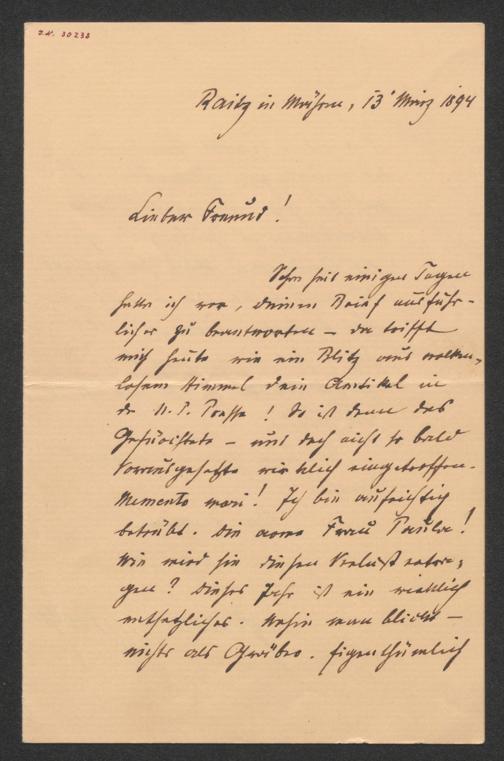 Z.N. 30238
Raitz in Mähren, 13' März 1894
Lieber Freund!
Schon seit einigen Tagen
hatte ich vor, Deinen Brief ausführ-
licher zu beantworten – da trifft
mich heute wie ein Blitz aus wolken-
losem Himmel Dein Artikel in
der N. F. Presse! So ist denn das
Gefürchtete – und doch nicht so bald
Vorausgesehte wirklich eingetroffen.
Memento mori! Ich bin aufrichtig
betrübt. Die arme Frau Paula!
Wie wird sie diesen Verlust ertra-
gen? Dieses Jahr ist ein wirklich
entsetzliches. Wohin man blickt –
nichts als Gräber. Eigenthümlich